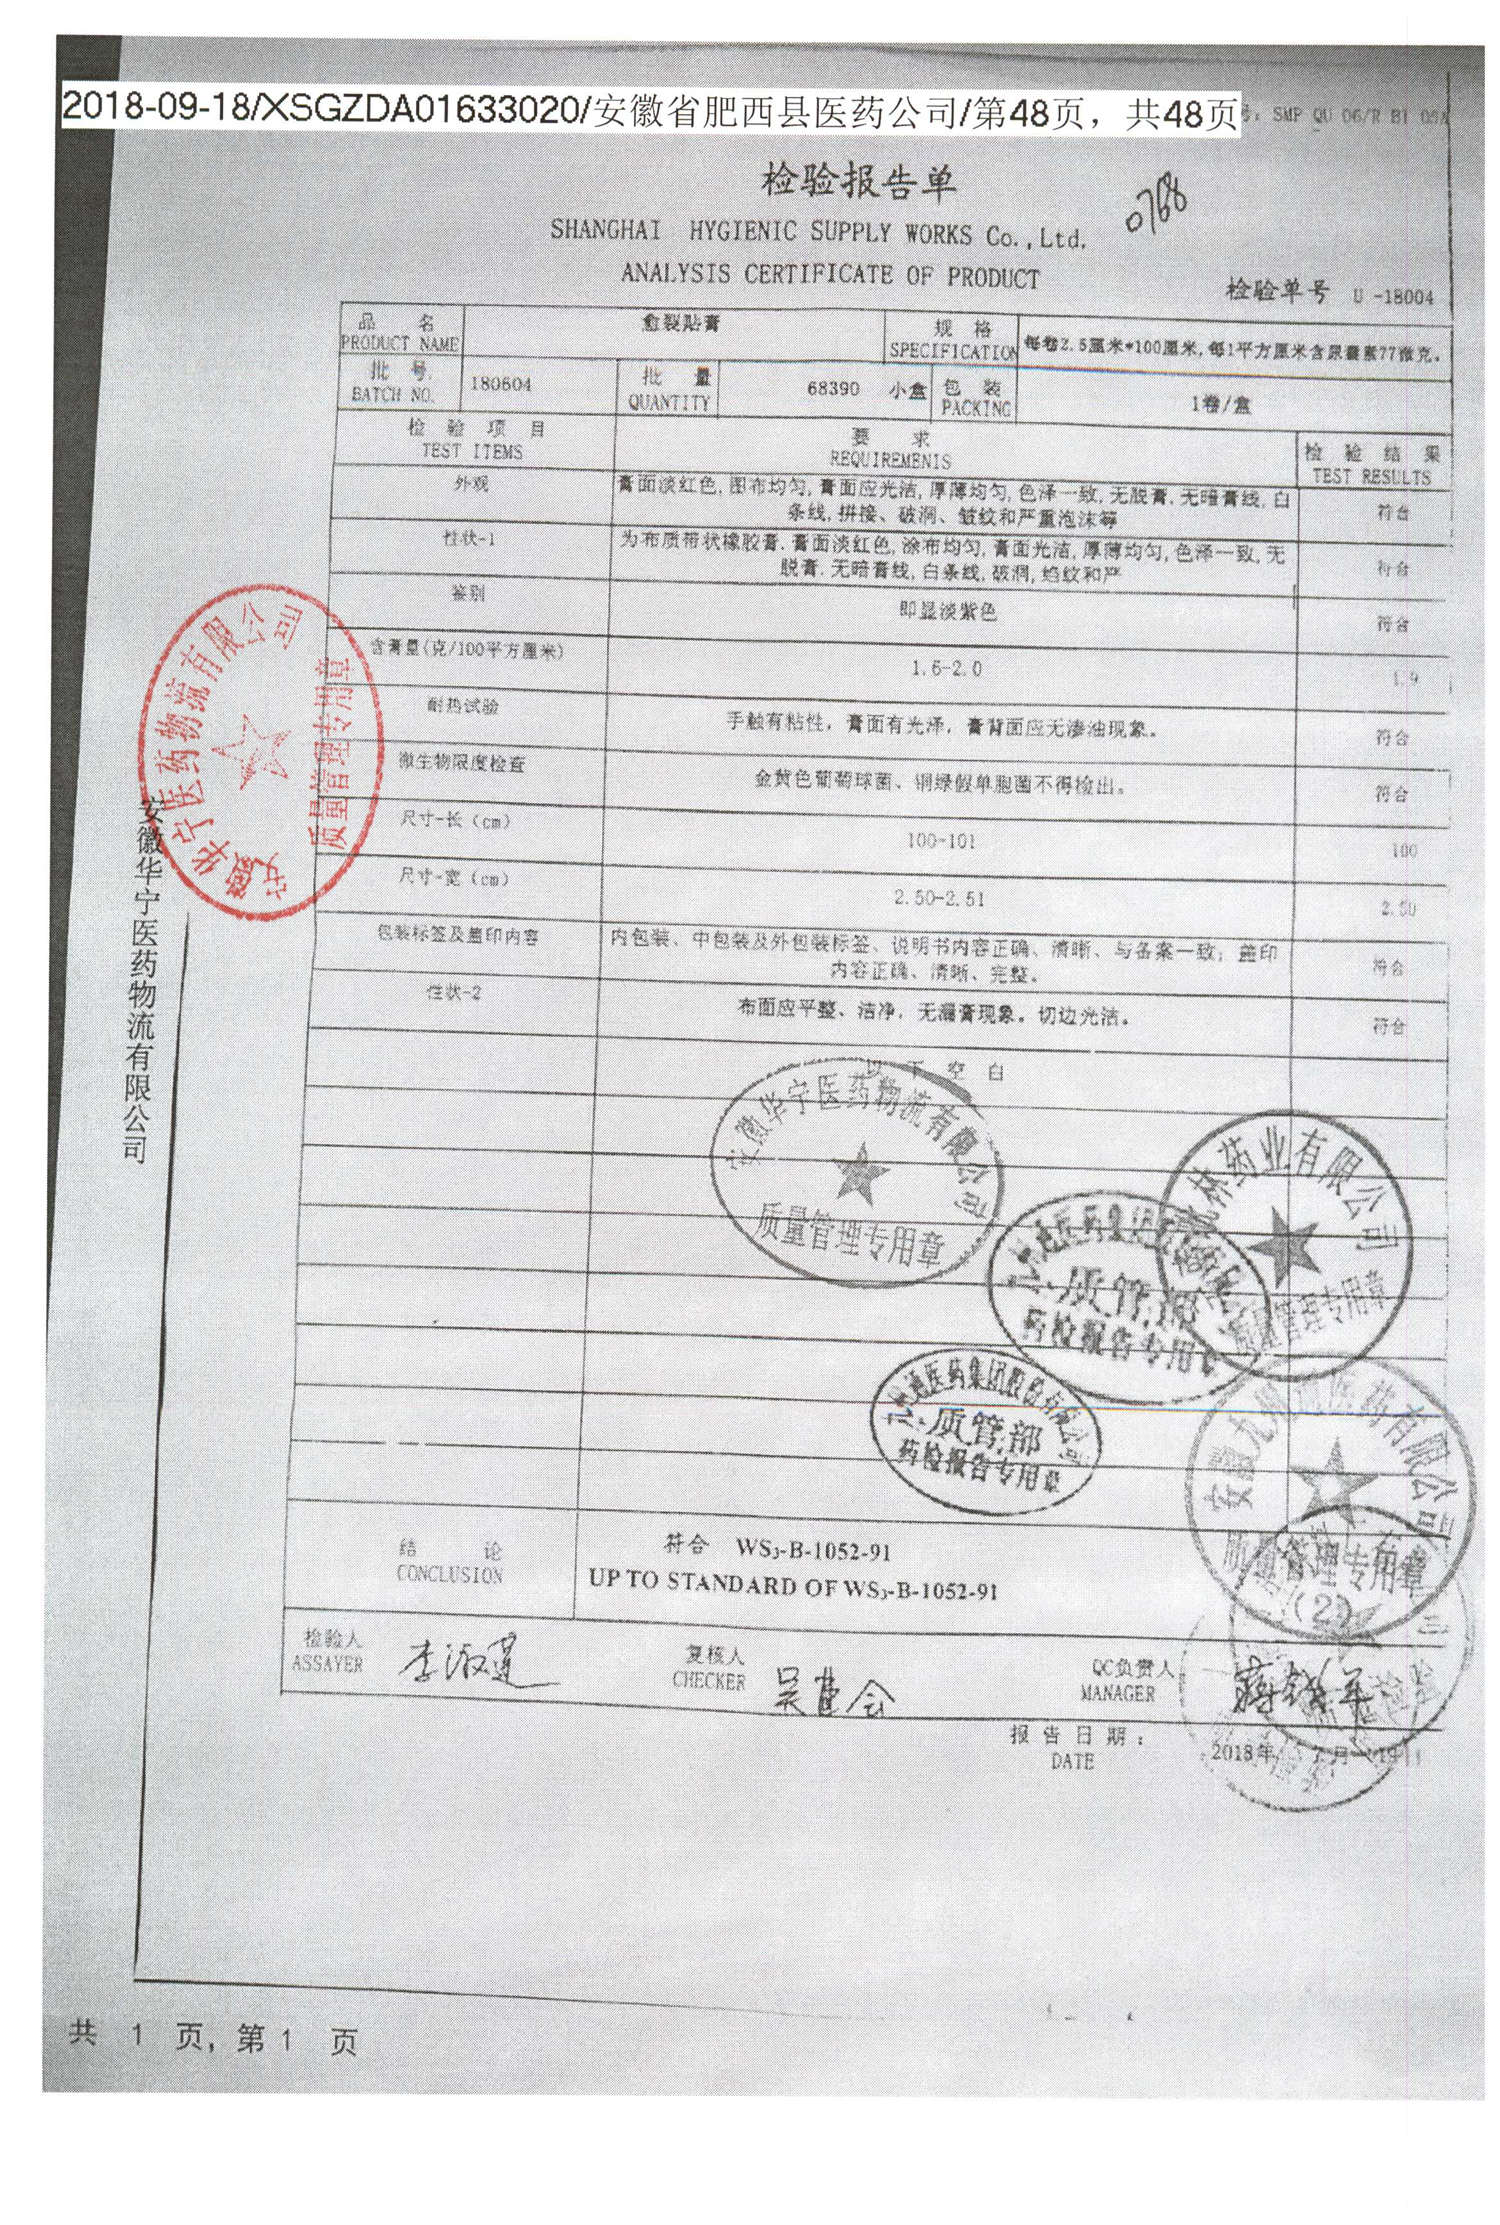 2018-09-18/XSGZDA01633020/安徽省肥西县医药公司/第48页，共48页
号：SMP QU 06/R B1 05A
检验报告单
0768
SHANGHAI HYGIENIC SUPPLY WORKS Co.,Ltd.
ANALYSIS CERTIFICATE OF PRODUCT
检验单号 U -18004
品 名 PRODUCT NAME 愈裂贴膏 规 格 SPECIFICATION 每卷2.5厘米*100厘米,每1平方厘米含尿囊素77微克.
批 号 BATCH NO. 180604 批 量 QUANTITY 68390 小盒 包 装 PACKING 1卷/盒
检 验 项 目 TEST ITEMS 要 求 REQUIREMENTS 检 验 结 果 TEST RESULTS
外观 膏面淡红色,图布均匀,膏面应光洁,厚薄均匀,色泽一致,无脱膏.无暗膏线,白
条线,拼接、破洞、皱纹和严重泡沫等 符合
性状-1 为布质带状橡胶膏.膏面淡红色,涂布均匀,膏面光洁,厚薄均匀,色泽一致,无
脱膏.无暗膏线,白条线,破洞,皱纹和严 符合
鉴别 即显淡紫色 符合
含膏量(克/100平方厘米) 1.6-2.0 1.9
耐热试验 手触有粘性，膏面有光泽，膏背面应无渗油现象。 符合
微生物限度检查 金黄色葡萄球菌、铜绿假单胞菌不得检出。 符合
尺寸-长（cm） 100-101 100
尺寸-宽（cm） 2.50-2.51 2.50
包装标签及盖印内容 内包装、中包装及外包装标签、说明书内容正确、清晰、与备案一致；盖印
内容正确、清晰、完整。 符合
性状-2 布面应平整、洁净，无漏膏现象。切边光洁。 符合
以 下 空 白
安徽华宁医药物流有限公司
质量管理专用章
安徽华宁医药物流有限公司
安徽华宁医药物流有限公司
质量管理专用章
药业有限公司
质量管理专用章
九州通医药集团
质管部
药检报告专用章
九州通医药集团股份有限公司
质管部
药检报告专用章
安徽九州通医药有限公司
质量管理专用章
(2)
结 论 CONCLUSION 符合 WS₃-B-1052-91
UP TO STANDARD OF WS₃-B-1052-91
检验人 ASSAYER 李淑莲 复核人 CHECKER QC负责人 MANAGER
报 告 日 期 ： DATE 2018年 7月
共 1 页, 第 1 页